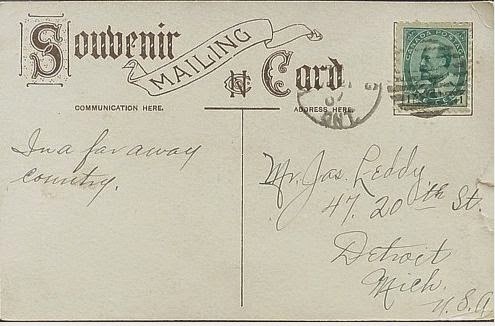 Souvenir
MAILING
Card
COMMUNICATION HERE.
ADDRESS HERE.
CANADA POSTAGE
07
ONT
In a far away
country.
Mr. Jas. Leddy
47. 20th St.
Detroit
Mich.
U.S.A